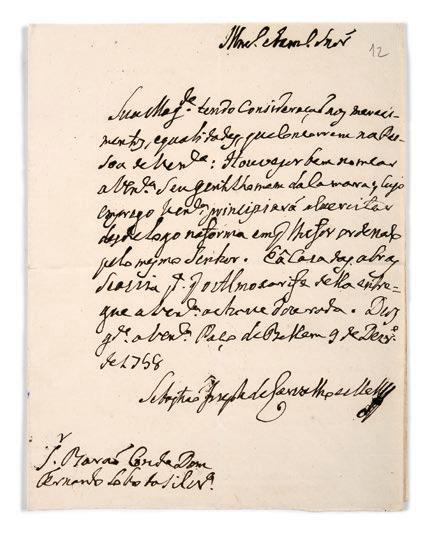 Illmo. e Exmo. Snor
12
Sua Magde. tendo Consideração aos mereci-
mentos, e qualidades, que Concorrem na Pes-
soa de V. Exa.: Houve por bem nomear
a V. Exa. Seu gentilhomem da Camara, Cujo
emprego V. Exa. principiará a exercitar
desde logo na forma em q lhe for ordenado
pelo mesmo Senhor. Ca Casa das obras
o Almoxarife della entre-
gue a V. Exa. a chave dourada. Deos
gde. a V. Exa. Paço de Bellem 9 de
de 1758
Sebastião Joseph de Carvalho e Mello
Sr. Barão Conde Dom
Fernando Lobo da Silvra.